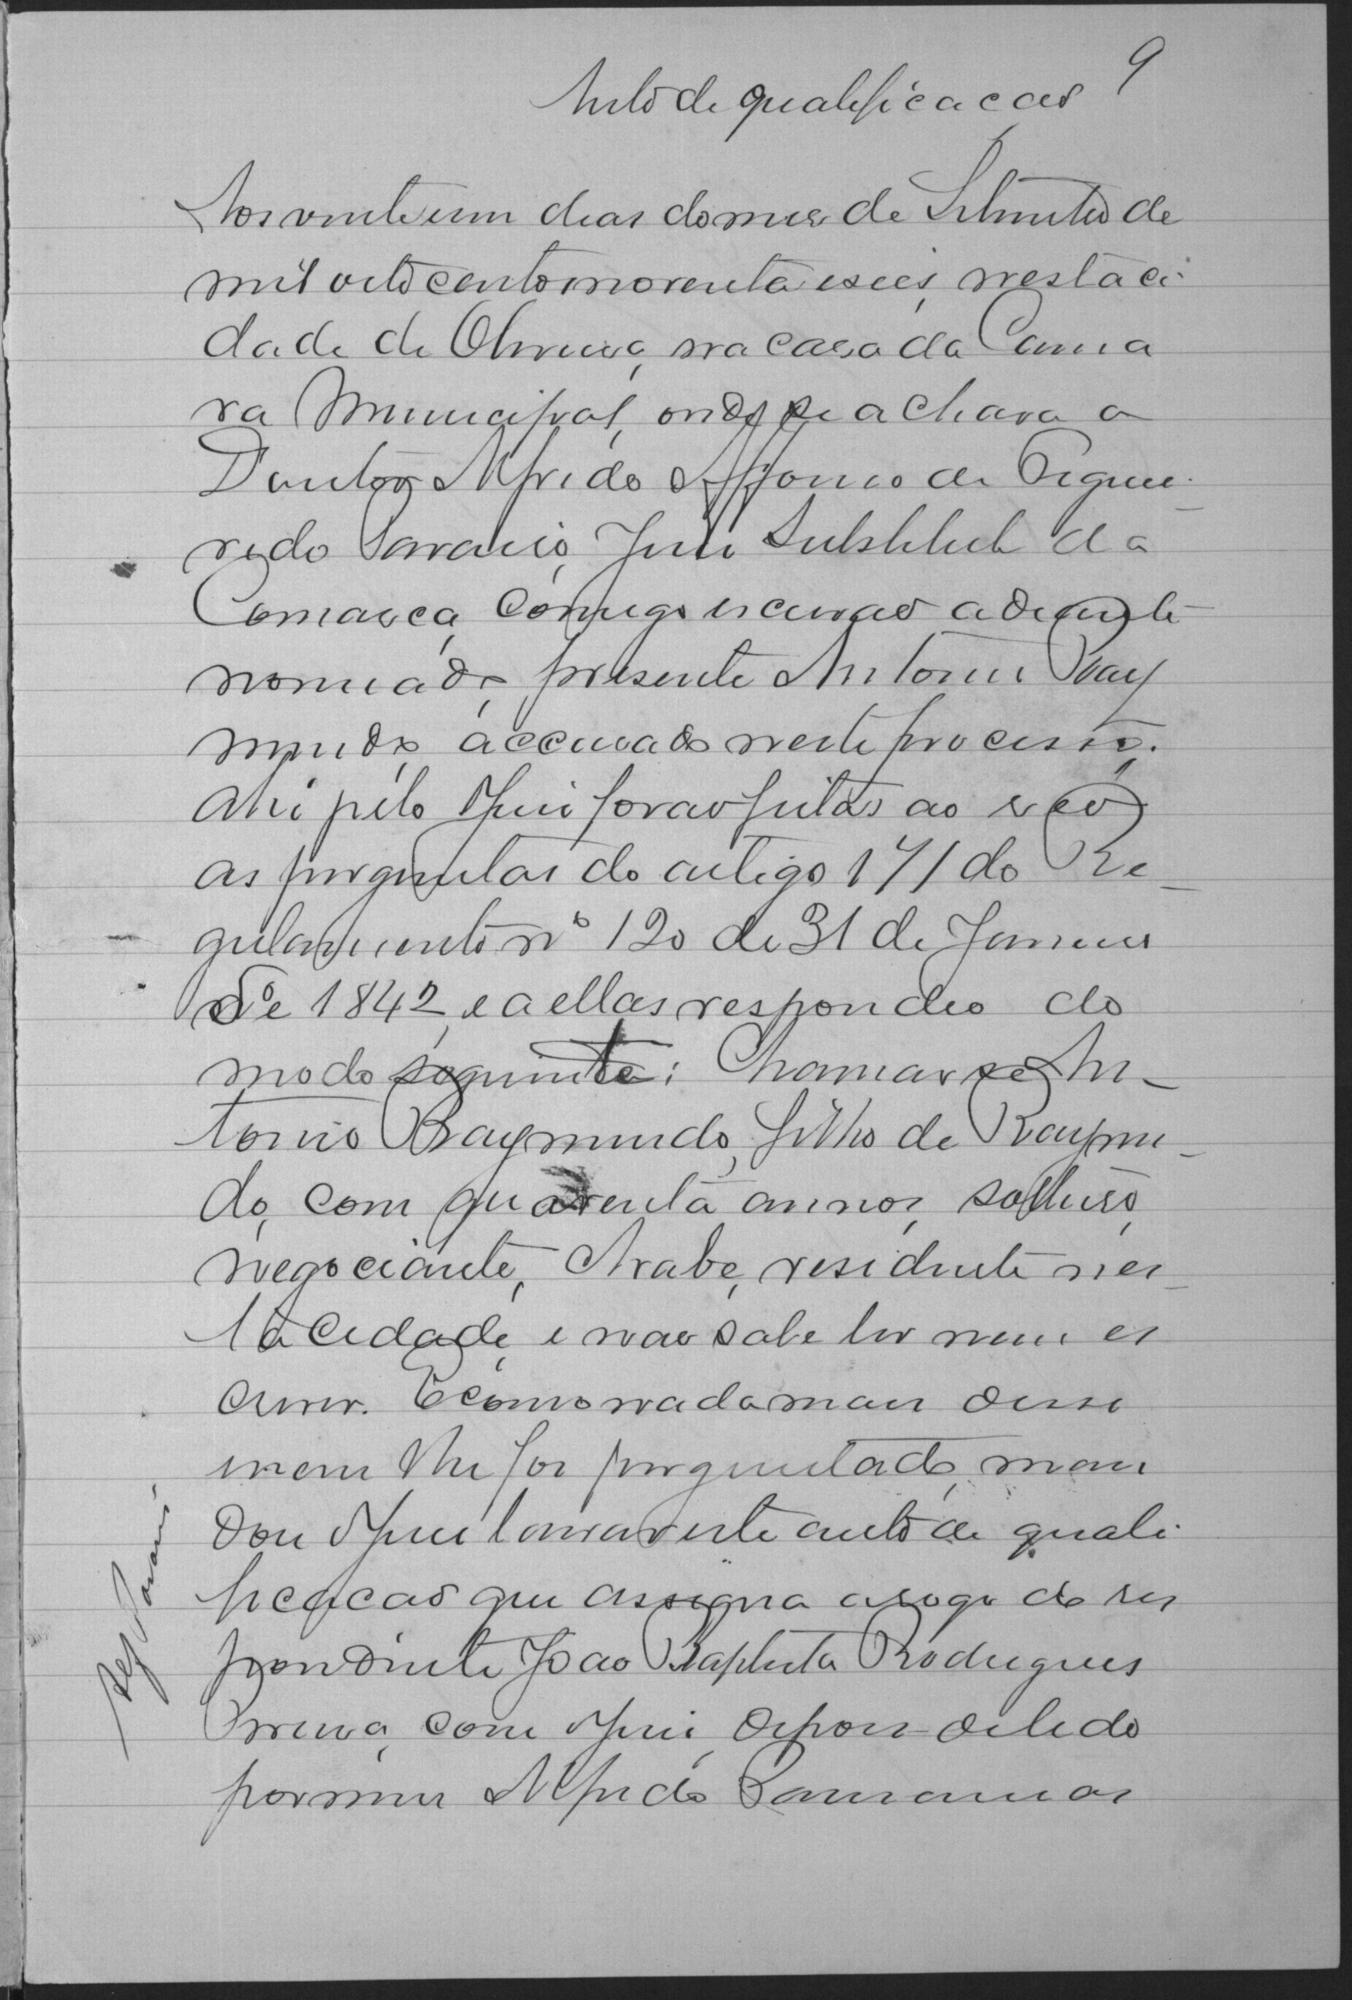 9
Auto de qualificação
Aos vinte e um dias do mes de Setembro de
mil oito centos noventa e seis, nesta ci-
dade de Oliveira, na casa da Cama
ra Municipal, onde se achava o
Doutor Alfredo Affonso de Figuei-
redo Paraiso, Juiz Substituto da
Comarca, comigo escrivão adeante
nomeado, presente Antonio Ray
mundo, accusado neste processo.
Ahi pelo Juiz forão feitas ao reo
as perguntas do artigo 171 do Re-
gulamento nº 120 de 31 de Janeiro
de 1842, e a ellas respondeo do
modo seguinte: Chamar se An-
tonio Raymundo, filho de Raymun-
do, com quarenta annos, solteiro,
negociante, Arabe, residente nes-
ta cidade, e não sabe ler nem es
crever. E como nada mais disse
e nem lhe foi perguntado, man
dou o Juiz lavrar este auto de quali-
ficação que assigna a rogo do res
pondente João Baptista Rodrigues
com o Juiz, depois de lido
por mim Alfredo